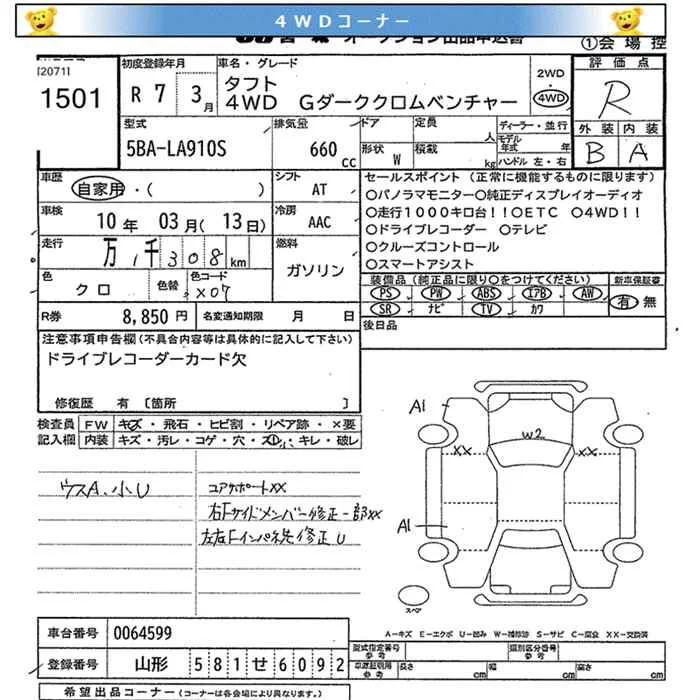 4WDコーナー
オークション出品申込書
①会場控
[2071]
1501
初度登録年月
R 7 3月
車名・グレード
タフト
4WD Gダーククロムベンチャー
2WD
・
4WD
評価点
R
外装 内装
B A
型式
5BA-LA910S
排気量
660 cc
ドア
形状 W
定員 人
積載 kg
ディーラー・並行
モデル年式 年
ハンドル 左・右
車歴
自家用・( )
シフト
AT
セールスポイント (正常に機能するものに限ります)
○パノラマモニター○純正ディスプレイオーディオ
○走行1000キロ台!!○ETC ○4WD!!
○ドライブレコーダー ○テレビ
○クルーズコントロール
○スマートアシスト
車検
10年 03月( 13日)
冷房
AAC
走行
万 1千308km
燃料
ガソリン
色
クロ
色替
色コード
X07
装備品 (純正品に限り○をつけてください)
PS PW ABS エアB AW
SR ナビ TV カワ
新車保証書
有 無
R券 8,850円
名変通知期限 月 日
後日品
注意事項申告欄(不具合内容等は具体的に記入して下さい)
ドライブレコーダーカード欠
修復歴 有 〔箇所 〕
検査員記入欄
FW キズ・飛石・ヒビ割・リペア跡・×要
内装 キズ・汚レ・コゲ・穴・スレ・キレ・破レ
ウスA、小U
コアサポートXX
右Fサイドメンバー修正一部XX
左右Fインパネ先修正U
A1
W2
XX XX
A1
スペア
A−キズ E−エクボ U−凹み W−補修跡 S−サビ C−腐食 XX−交換済
車台番号 0064599
登録番号 山形 581せ6092
型式指定番号 参考
類別区分番号 参考
車庫証明用 参考 長さ 幅 高さ
希望出品コーナー (コーナーは各会場により異なります。)